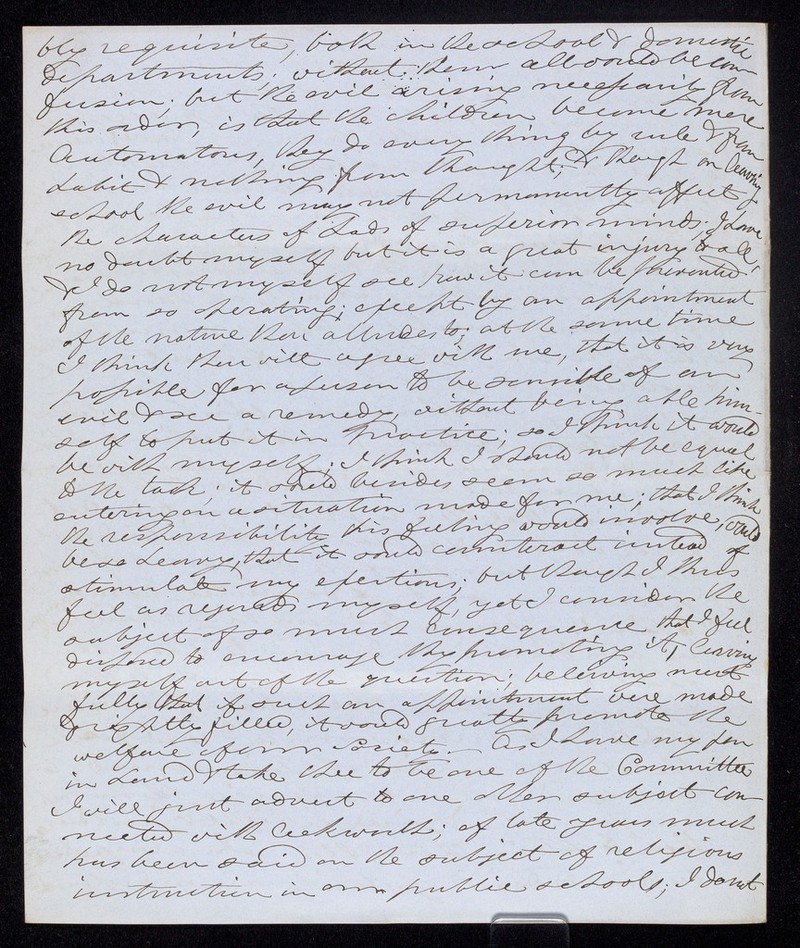 bly requisite, both in the school & domestic
departments; without them all would be con
fusion; but the evil arising necessarily from
this order, is that the children become mere
Automatons, they do every thing by rule & from
habit & nothing from thought. & though on leaving
school the evil may not permanently affect
the characters of Lads of superior minds. I have
no doubt myself but it is a great injury to all,
& I do not myself see how it can be prevented
from so operating; except by an appointment
of the nature thou alludes to; at the same time
I think thou will agree with me, that it is very
possible for a person to be sensible of an
evil & see a remedy, without being able him-
self to put it in practice; so I think it would
be with myself; I think I should not be equal
to the task; it would besides seem so much like
entering on a situation made for me; that I think
the responsibility this feeling would involve, would
be so heavy, that it would counteract instead of
stimulate my exertions; but though I thus
feel as regards myself, yet I consider the
subject of so much consequence that I feel
disposed to encourage thy promoting it, leaving
myself out of the question; believing most
fully that if such an appointment were made
& rightly filled, it would greatly promote the
welfare of our Society — As I have my pen
in hand & take thee to be one of the Committee
I will just advert to one other subject con
nected with Ackworth; of late years much
has been said on the subject of religious
instruction in our public schools; I do not